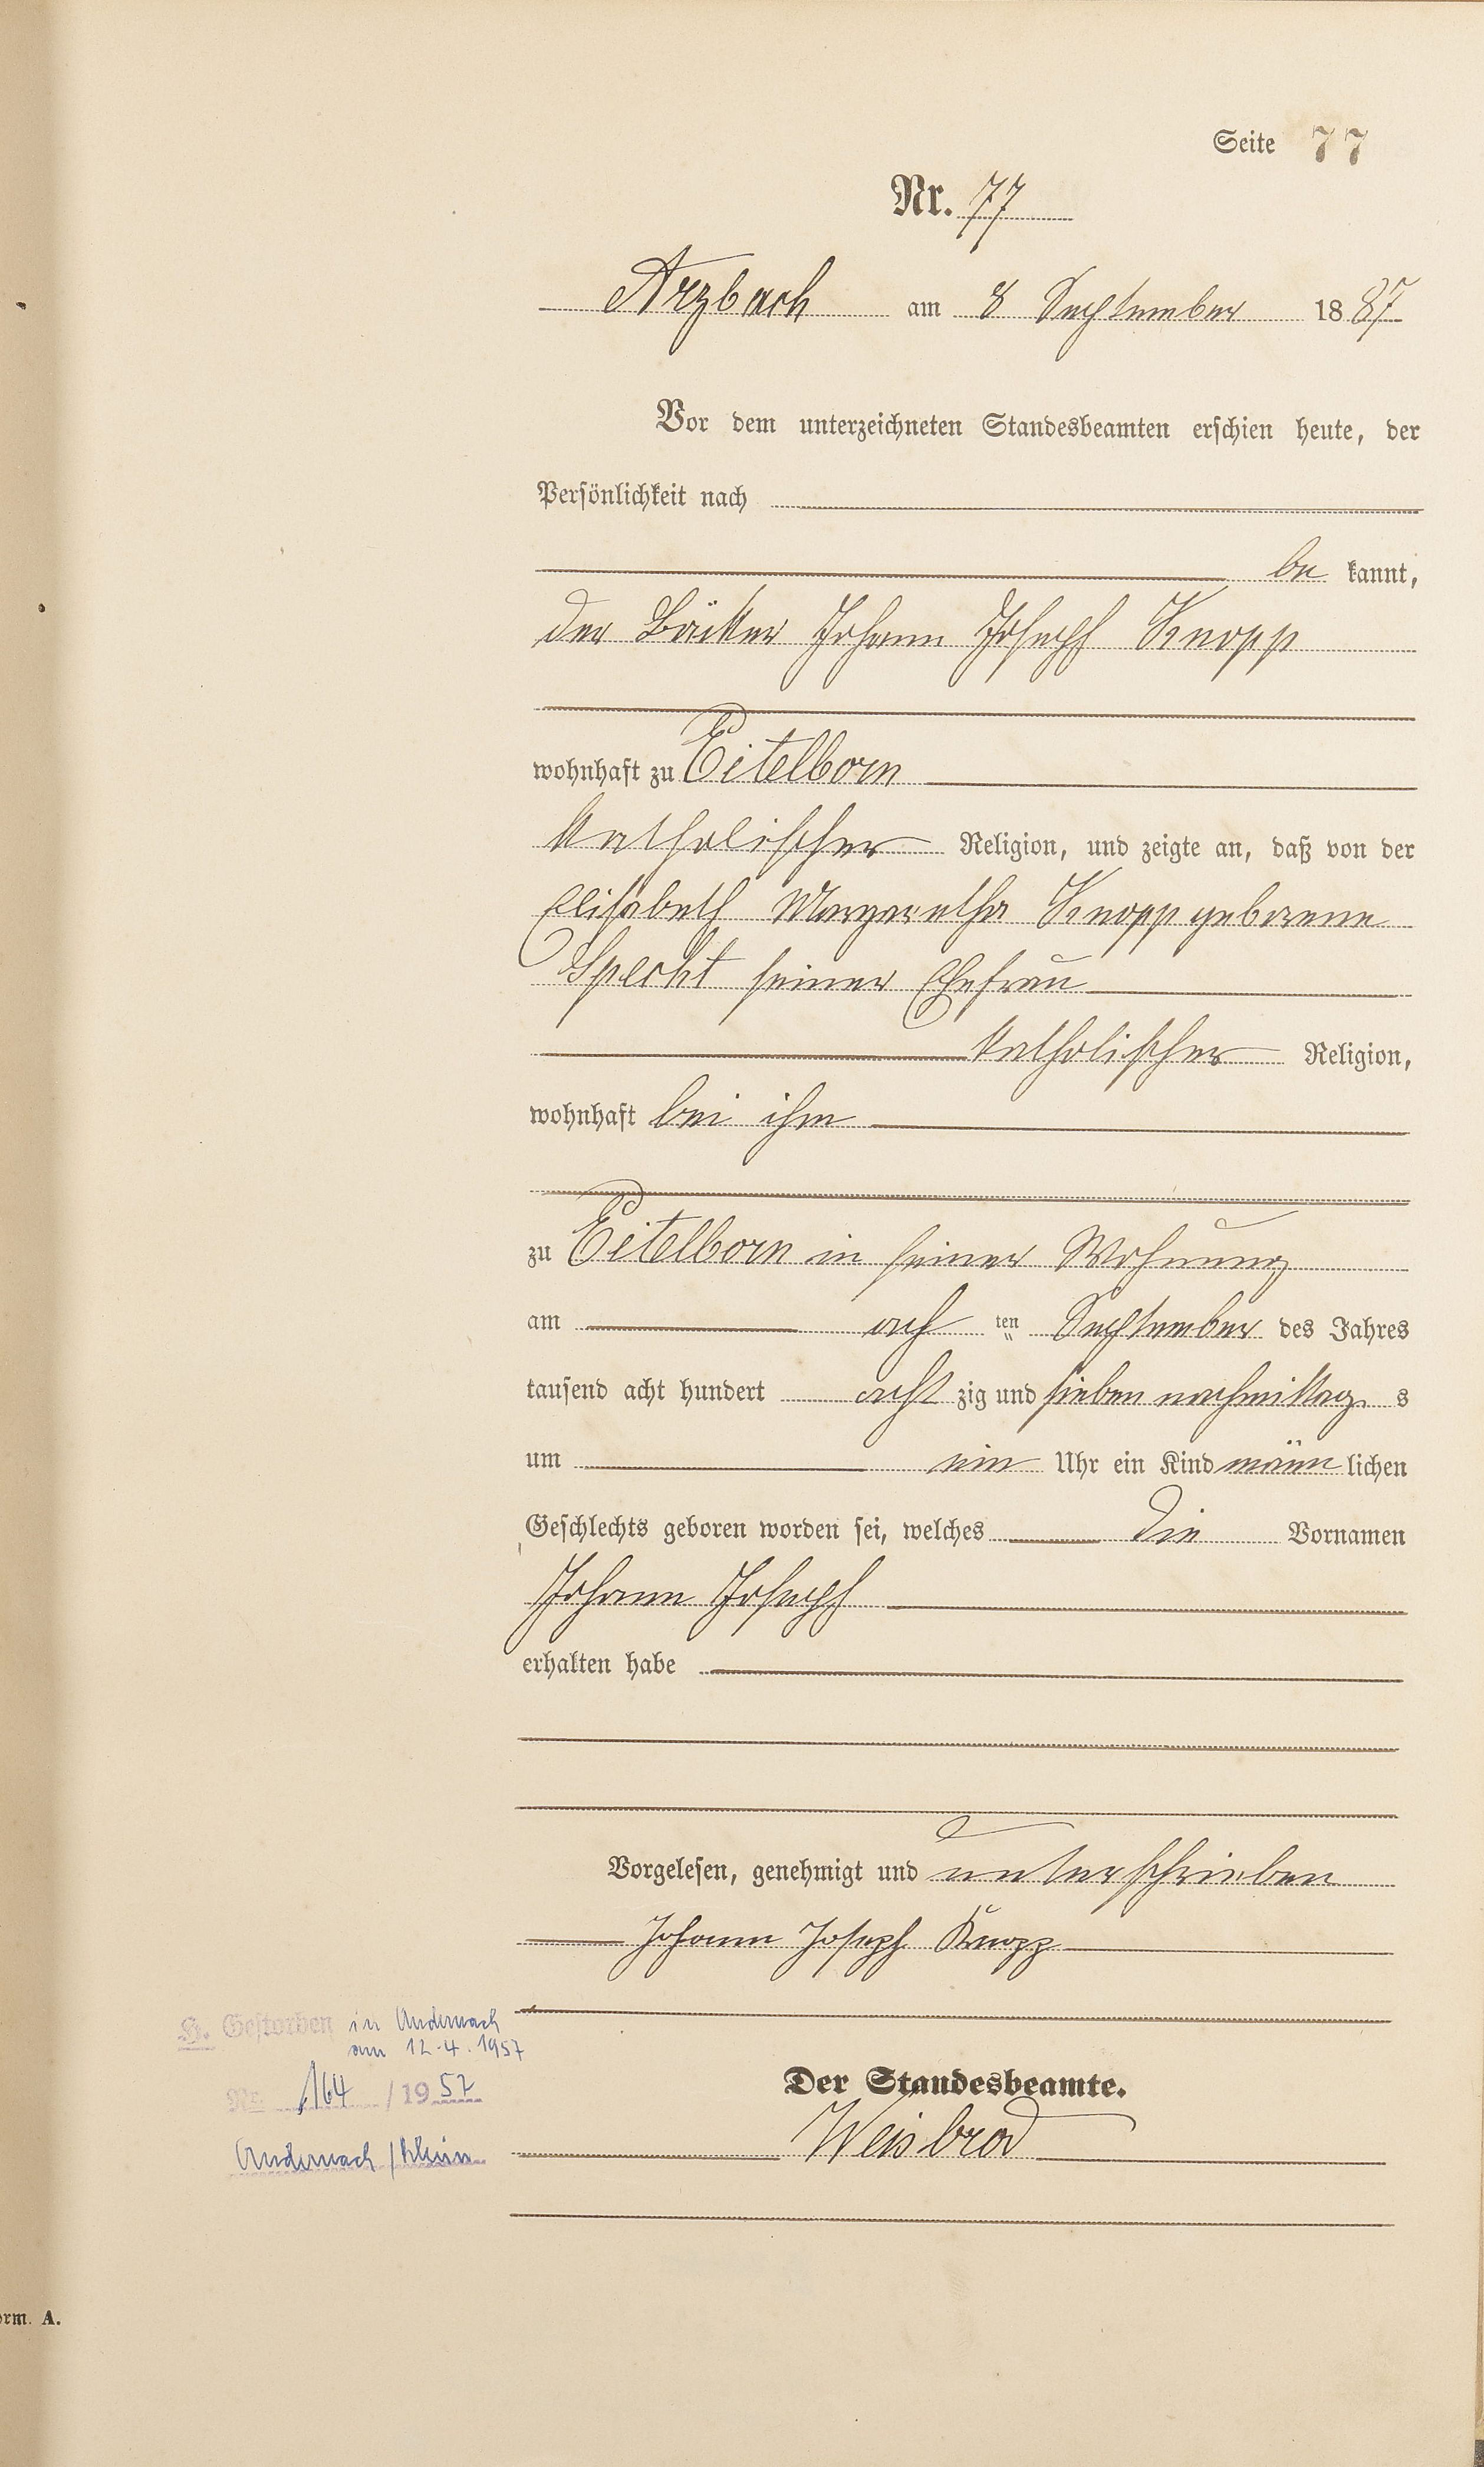 Seite 77
Nr. 77
Arzbach am 8 September 1887
Vor dem unterzeichneten Standesbeamten erschien heute, der
Persönlichkeit nach
be kannt,
der Bäcker Johann Joseph Knopp
wohnhaft zu Eitelborn
katholischer Religion, und zeigte an, daß von der
Elisabeth Margaretha Knopp geborene
Specht seiner Ehefrau
katholischer Religion,
wohnhaft bei ihm
zu Eitelborn in seiner Wohnung
am ach ten September des Jahres
tausend acht hundert acht zig und sieben nachmittag s
um ein Uhr ein Kind männ lichen
Geschlechts geboren worden sei, welches die Vornamen
Johann Joseph
erhalten habe
Vorgelesen, genehmigt und unterschrieben
Johann Joseph Knopp
H. Gestorben in Andernach
am 12.4.1957
Nr. 164 /1957
Andernach/Rhein
Der Standesbeamte.
Weisbrod
orm. A.